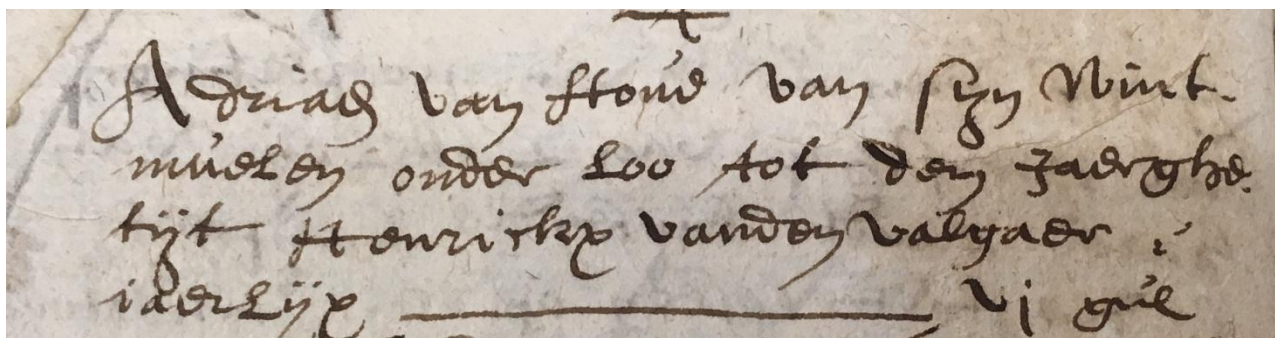 Adriaen van Stove van syn Wint-
muelen onder Loo tot den Jaerghe-
tyt Henrickx vanden Valgaer
iaerlijx vj gul